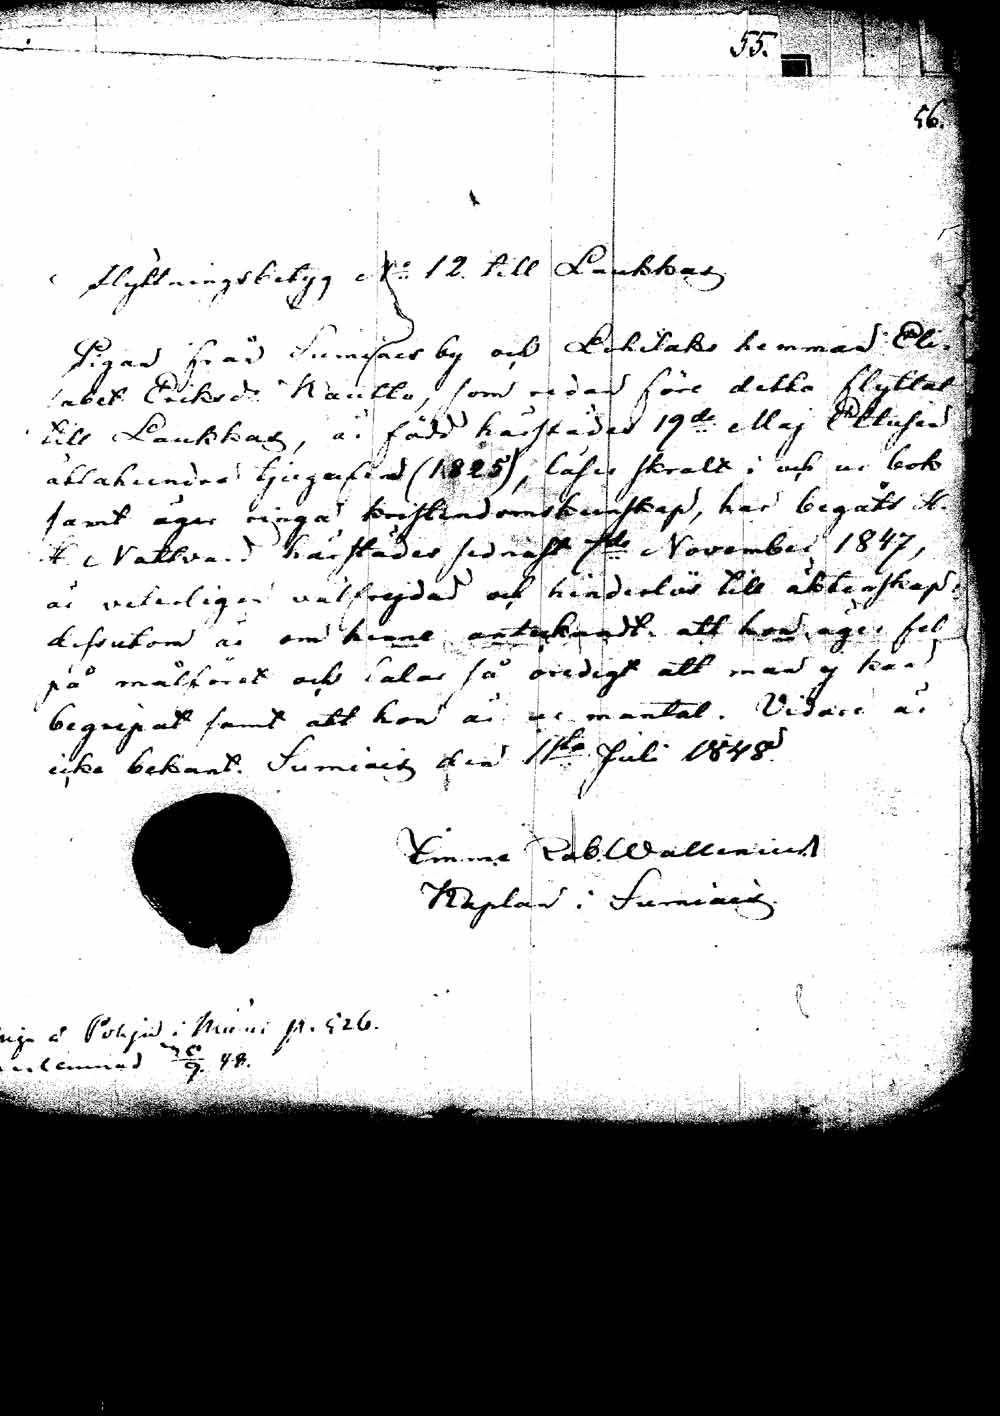 55.
56.
Flyttningsbetyg No 12. till Laukkas
Pigan från Sumiais by och Lehilaks hemman Eli-
sabet Eriksdr Kautto, som redan före detta flyttat
till Laukkas, är född härstädes 19de Maj Ettusen
åttahundra tjugufem (1825), läser skralt i och ur bok
samt äger ringa kristendomskunskap, har begått H.
H. Nattvard härstädes sednast 7de November 1847,
är veterligen välfrejdad och hinderlös till äktenskap;
dessutom är om henne antecknadt att hon äger fel
på målföret och talar så oredigt att man ej kan
begripat samt att hon är ur mantal. Vidare är
icke bekant. Sumiais den 11te Juli 1848.
Wallenius
Kaplan i Sumiais
å Pohja i p. 526.
9. 48.